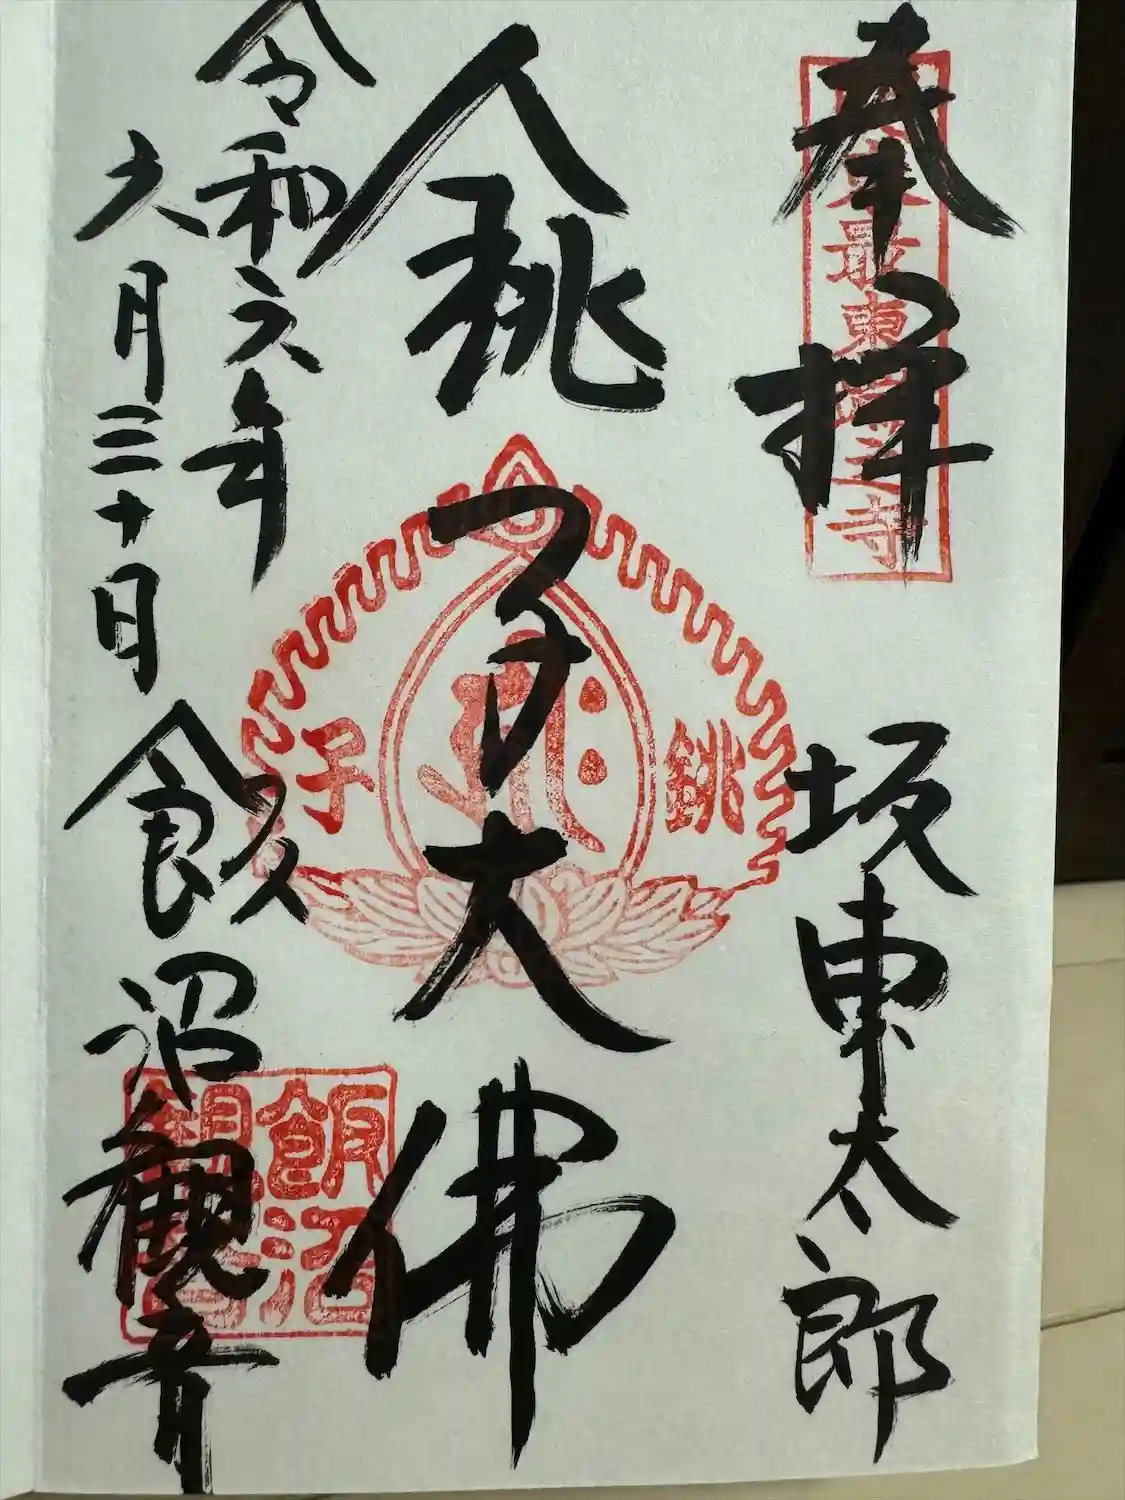 奉拝
最東
寺
坂東太郎
銚子大佛
銚子
令和六年
六月三十日
飯沼観音
飯沼
観音